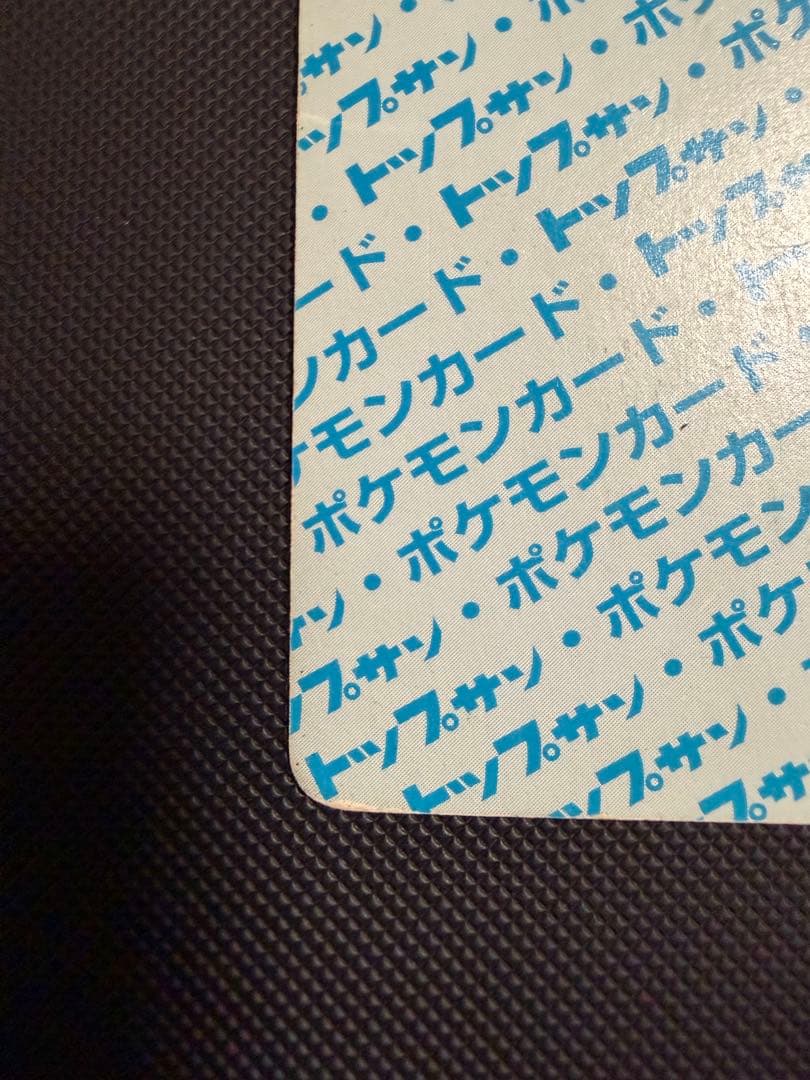 サン・
ップサン・ポ
・トップサン・ポケ
ード・トップサン・ポケ
ンカード・トップサン・
ケモンカード・トップサ
ポケモンカード・ト
ン・ポケモンカード・
プサン・ポケモンカー
トップサン・ポケモン
トップサン・ポケ
ップサン・
プサ